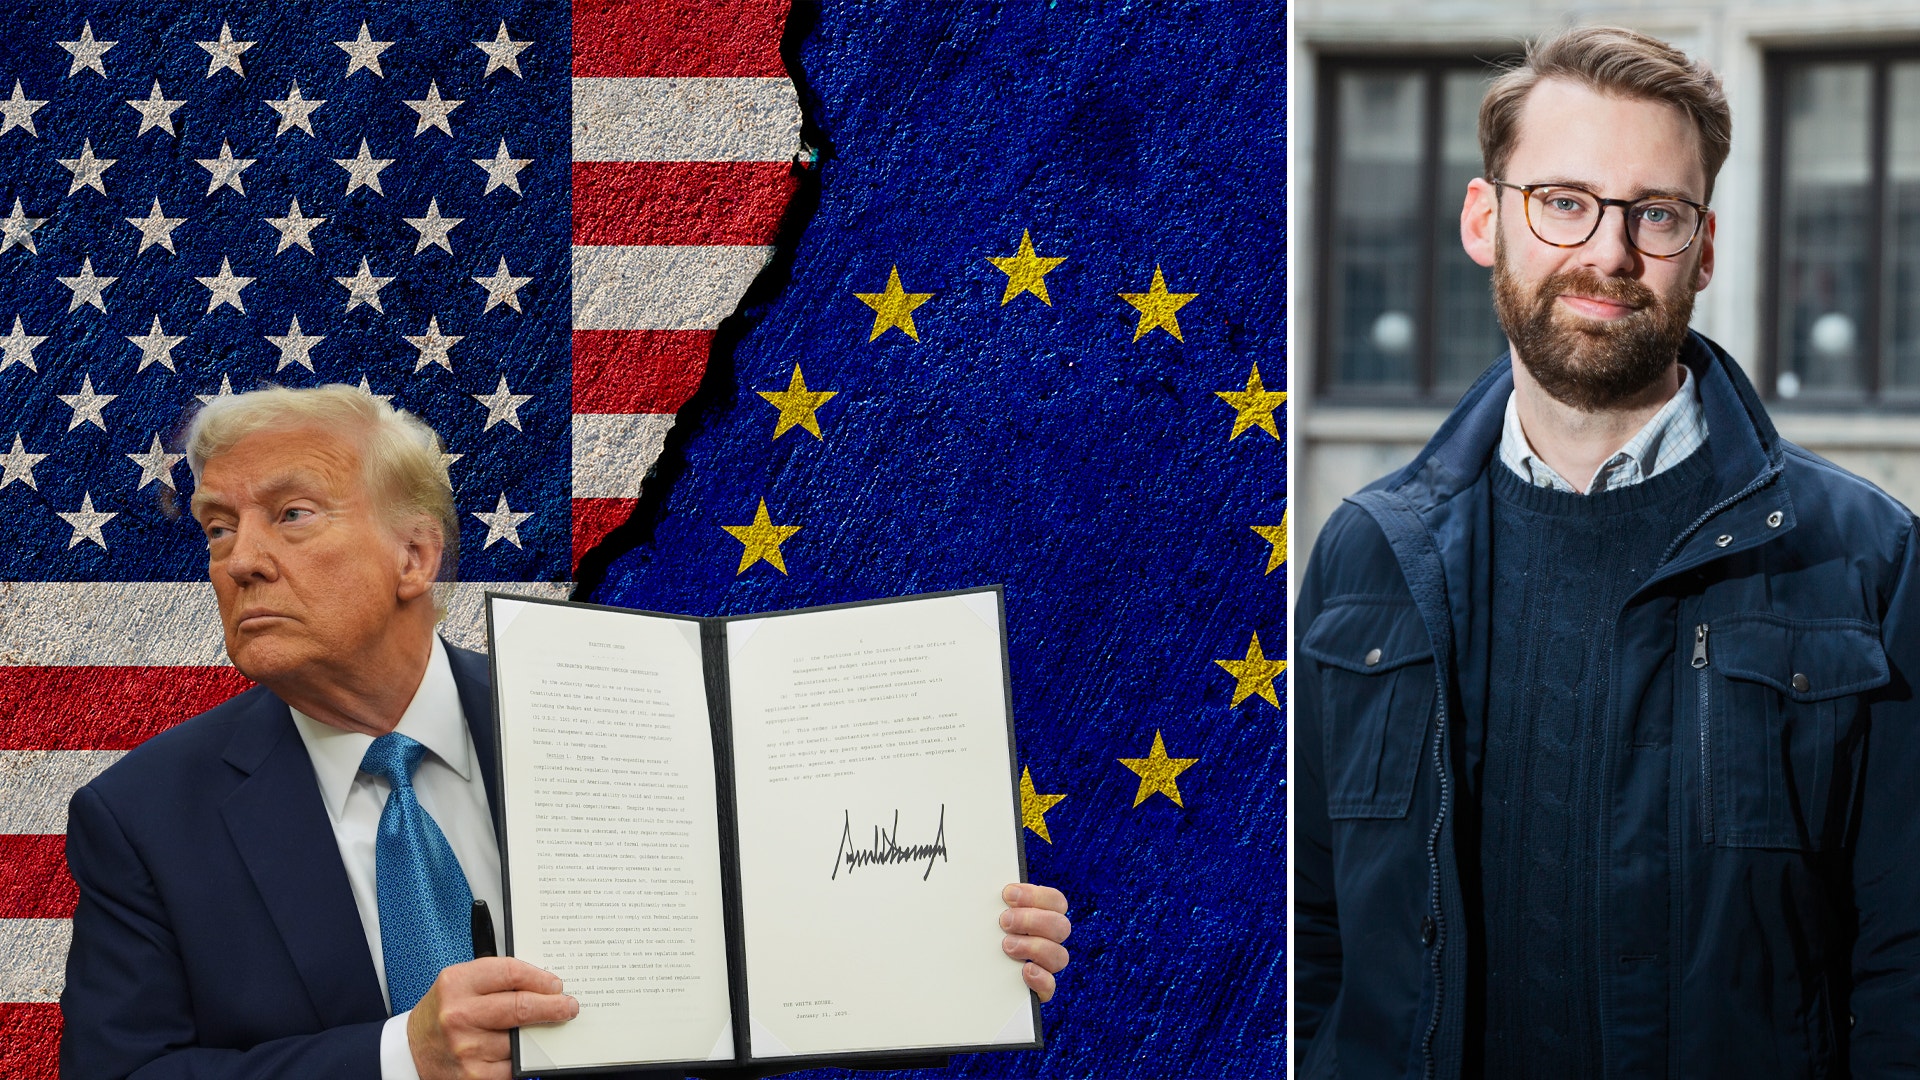 EXECUTIVE ORDER
UNLEASHING PROSPERITY THROUGH DEREGULATION
By the authority vested in me as President by the
Constitution and the laws of the United States of America,
including the Budget and Accounting Act of 1921, as amended
(31 U.S.C. 1101 et seq.), and in order to promote prudent
financial management and alleviate unnecessary regulatory
burdens, it is hereby ordered:
Section 1. Purpose. The ever-expanding morass of
complicated Federal regulation imposes massive costs on the
lives of millions of Americans, creates a substantial restraint
on our economic growth and ability to build and innovate, and
hampers our global competitiveness. Despite the magnitude of
their impact, these measures are often difficult for the average
person or business to understand, as they require synthesizing
the collective meaning not just of formal regulations but also
rules, memoranda, administrative orders, guidance documents,
policy statements, and interagency agreements that are not
subject to the Administrative Procedure Act, further increasing
compliance costs and the risk of costs of non-compliance. It is
the policy of my Administration to significantly reduce the
private expenditures required to comply with Federal regulations
to secure America's economic prosperity and national security
and the highest possible quality of life for each citizen. To
that end, it is important that for each new regulation issued,
at least 10 prior regulations be identified for elimination,
practice is to ensure that the cost of planned regulations
responsibly managed and controlled through a rigorous
budgeting process.
(ii) the functions of the Director of the Office of
Management and Budget relating to budgetary,
administrative, or legislative proposals.
(b) This order shall be implemented consistent with
applicable law and subject to the availability of
appropriations.
(c) This order is not intended to, and does not, create
any right or benefit, substantive or procedural, enforceable at
law or in equity by any party against the United States, its
departments, agencies, or entities, its officers, employees, or
agents, or any other person.
THE WHITE HOUSE,
January 31, 2025.